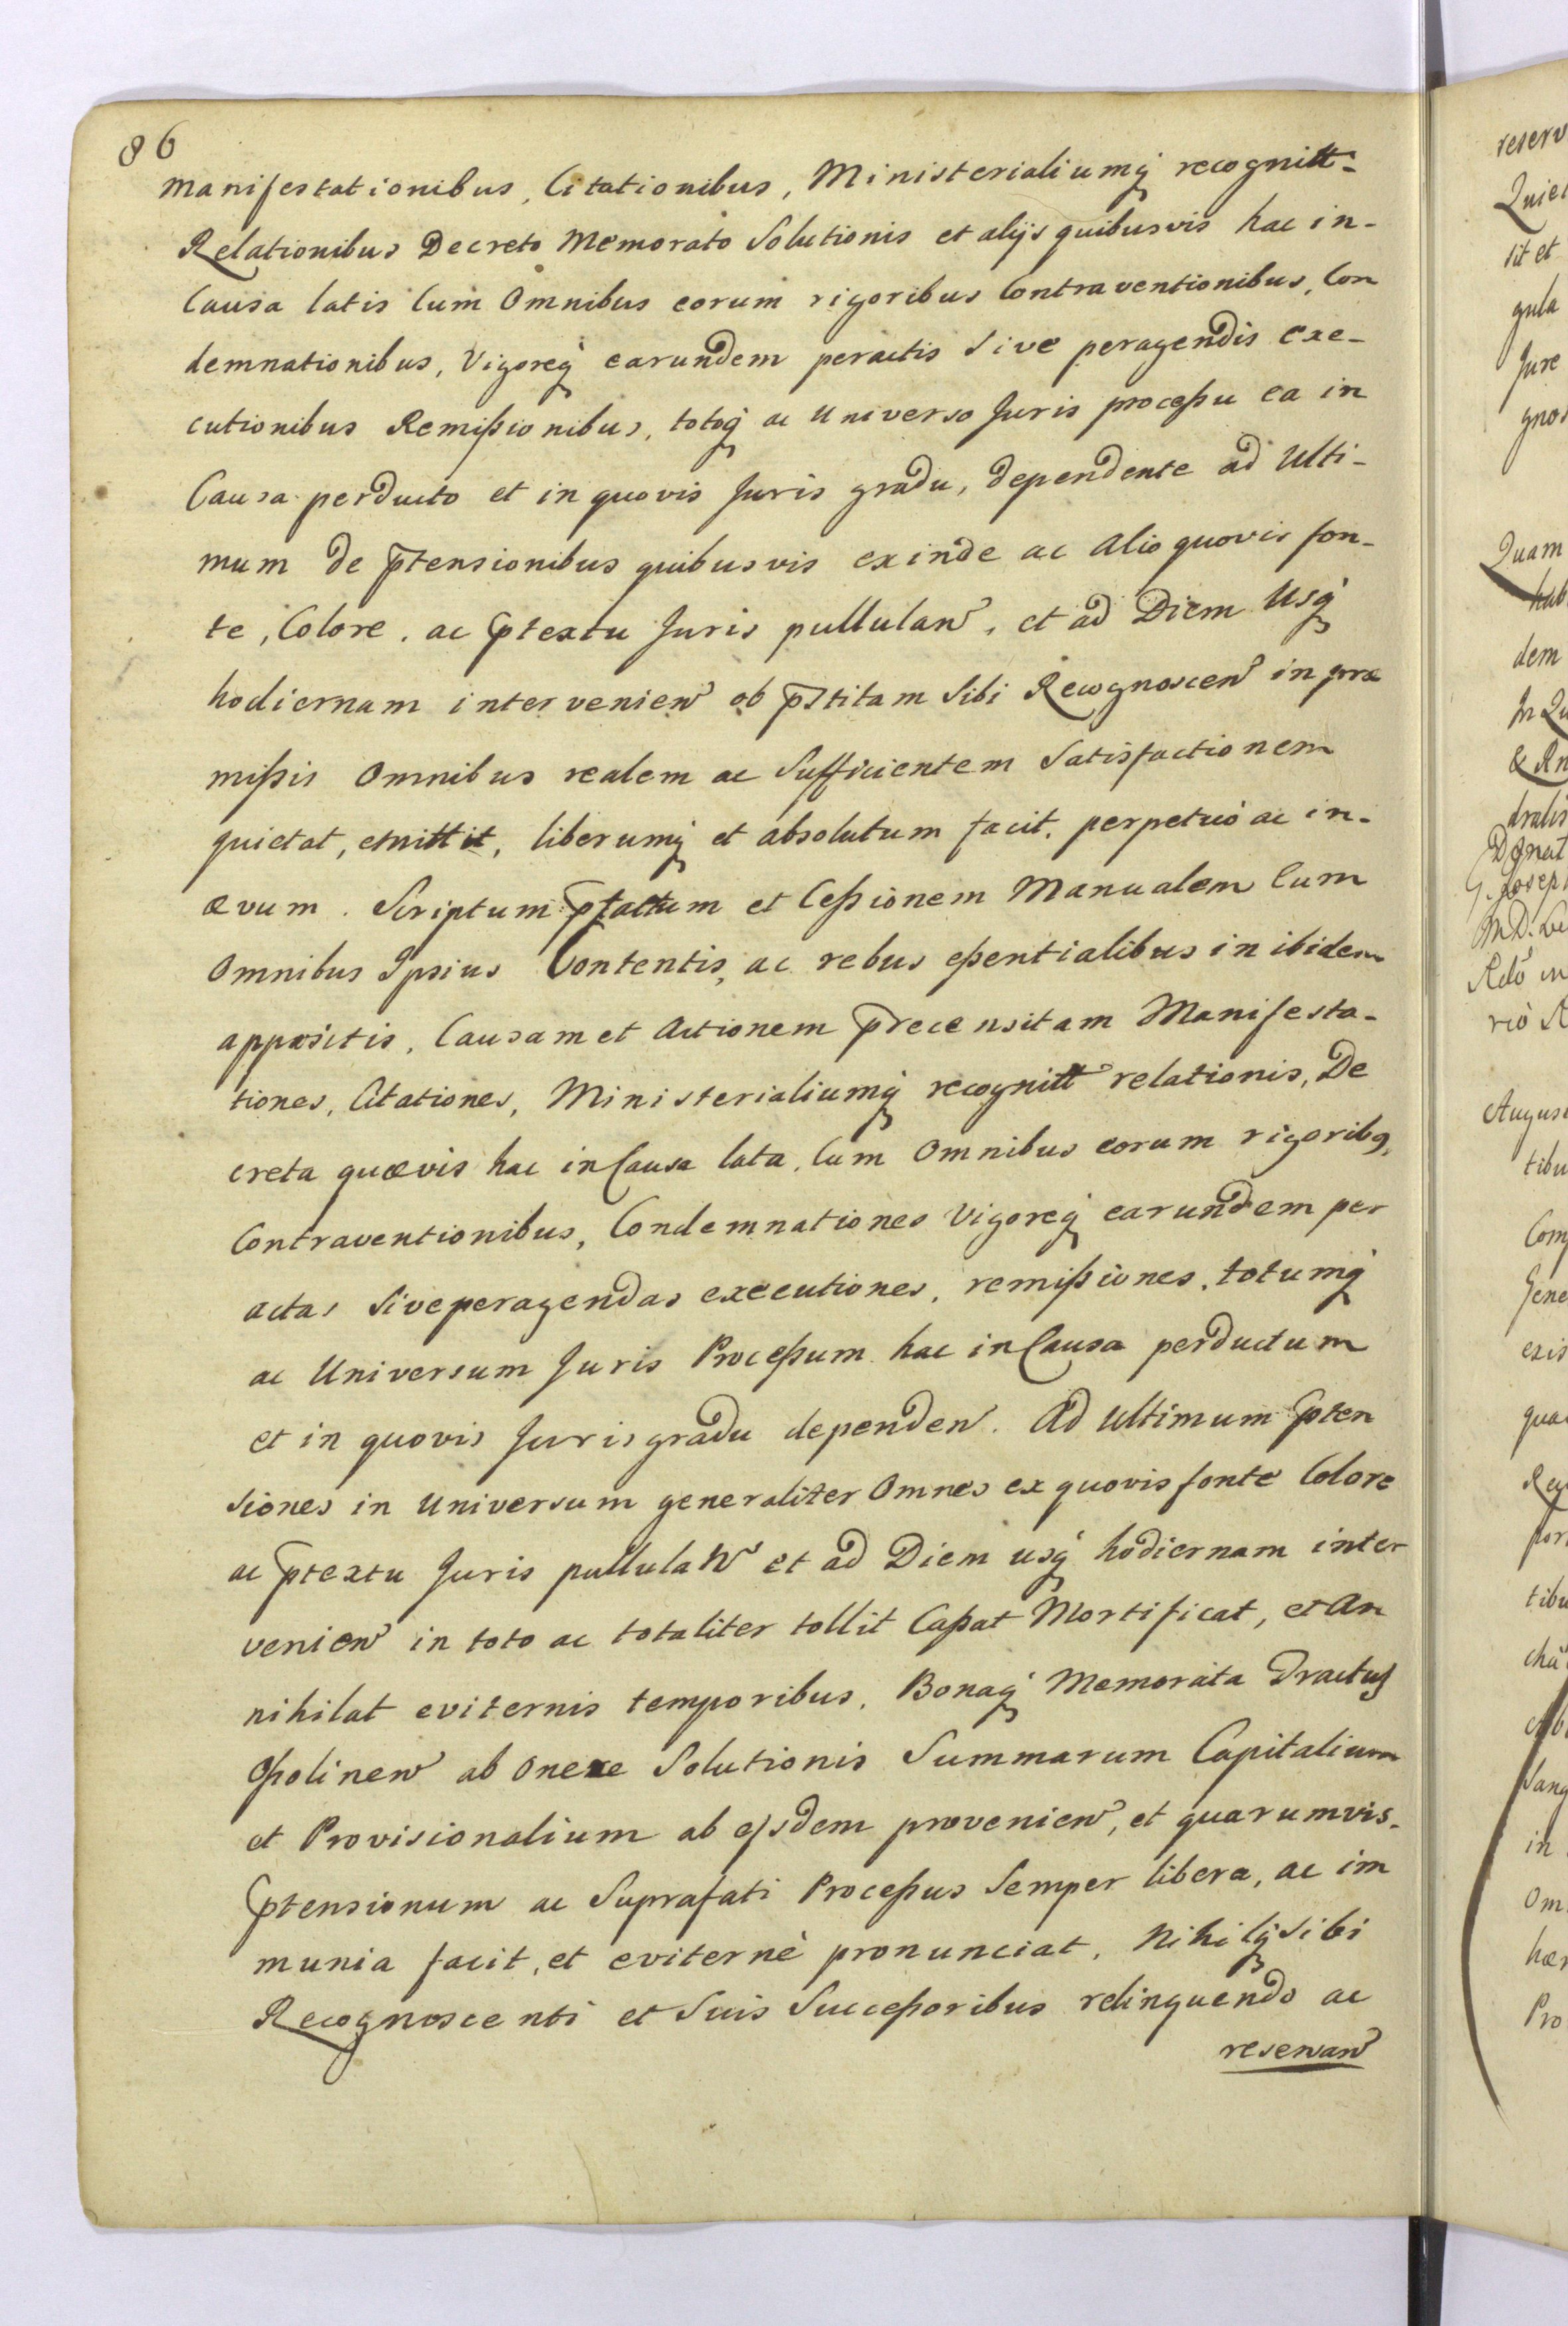 86
manifestationibus, Citationibus, Ministerialiumq́ recognitt-
Relationibus Decreto Memorato Solutionis et alijs quibusvis hac in-
Causa latis Cum Omnibus eorum rigoribus Contraventionibus, Con
demnationibus, Vigoreq́ earundem peractis sive peragendis exe-
cutionibus Remißionibus, totoq́ ac Universo Juris proceßu ea in
Causa perducto et in quovis Juris gradu, dependente ad Ulti-
mum de p̄tensionibus quibusvis exinde ac alio quovis fon-
te, Colore, ac p̄textu Juris pullulan̄, et ad Diem Usq́
hodiernam intervenien̄ ob p̄stitam sibi Recognoscen̄ in præ
mißis Omnibus realem ac Sufficientem Satisfactionem
quietat, emittit, liberumq́ et absolutum facit, perpetuò ac in-
ævum. Scriptum p̄factum et Ceßionem Manualem Cum
Omnibus Ipsius Contentis, ac rebus eßentialibus in ibidem
appositis, Causam et Actionem p̄recensitam Manifesta-
tiones, Citationes, Ministerialiumq́ recognitt relationis, De
creta quævis hac in Causa lata, Cum Omnibus eorum rigoribꝫ,
Contraventionibus, Condemnationes Vigoreq́ earundem per
actas sive peragendas executiones, remißiones, totumq́
ac Universum Juris Proceßum hac in Causa perductum
et in quovis Juris gradu dependen̄. Ad Ultimum p̄ten
siones in Universum generaliter Omnes ex quovis fonte Colore
ac p̄textu Juris pullulan̄ et ad Diem usq́ hodiernam inter
venien̄ in toto ac totaliter tollit Caßat Mortificat, et An
nihilat eviternis temporibus, Bonaq́ Memorata Tractus
Opolinen̄ ab onere Solutionis Summarum Capitalium
et Provisionalium ab ejsdem provenien̄, et quarumvis
p̄tensionum ac Suprafati Proceßus Semper libera, ac im
munia facit, et eviternè pronunciat, Nihilq́ sibi
Recognoscenti et Suis Succeßoribus relinquendo ac
reservan̄
reserv
Quiet
sit et
gula
Jure
gnos
Quam
hab
dem
In Qu
dralis
Joseph
August
tibu
Com
Gene
exis
qua
por
tibu
Sang
in
Om
hær
Pro